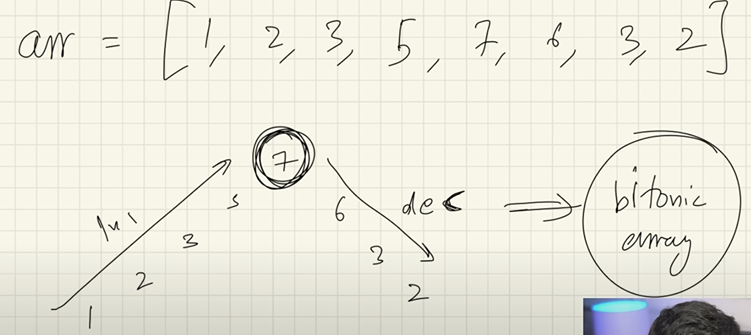 arr = [1, 2, 3, 5, 7, 6, 3, 2]
7
5
3
2
1
6
3
2
dec
bitonic
array